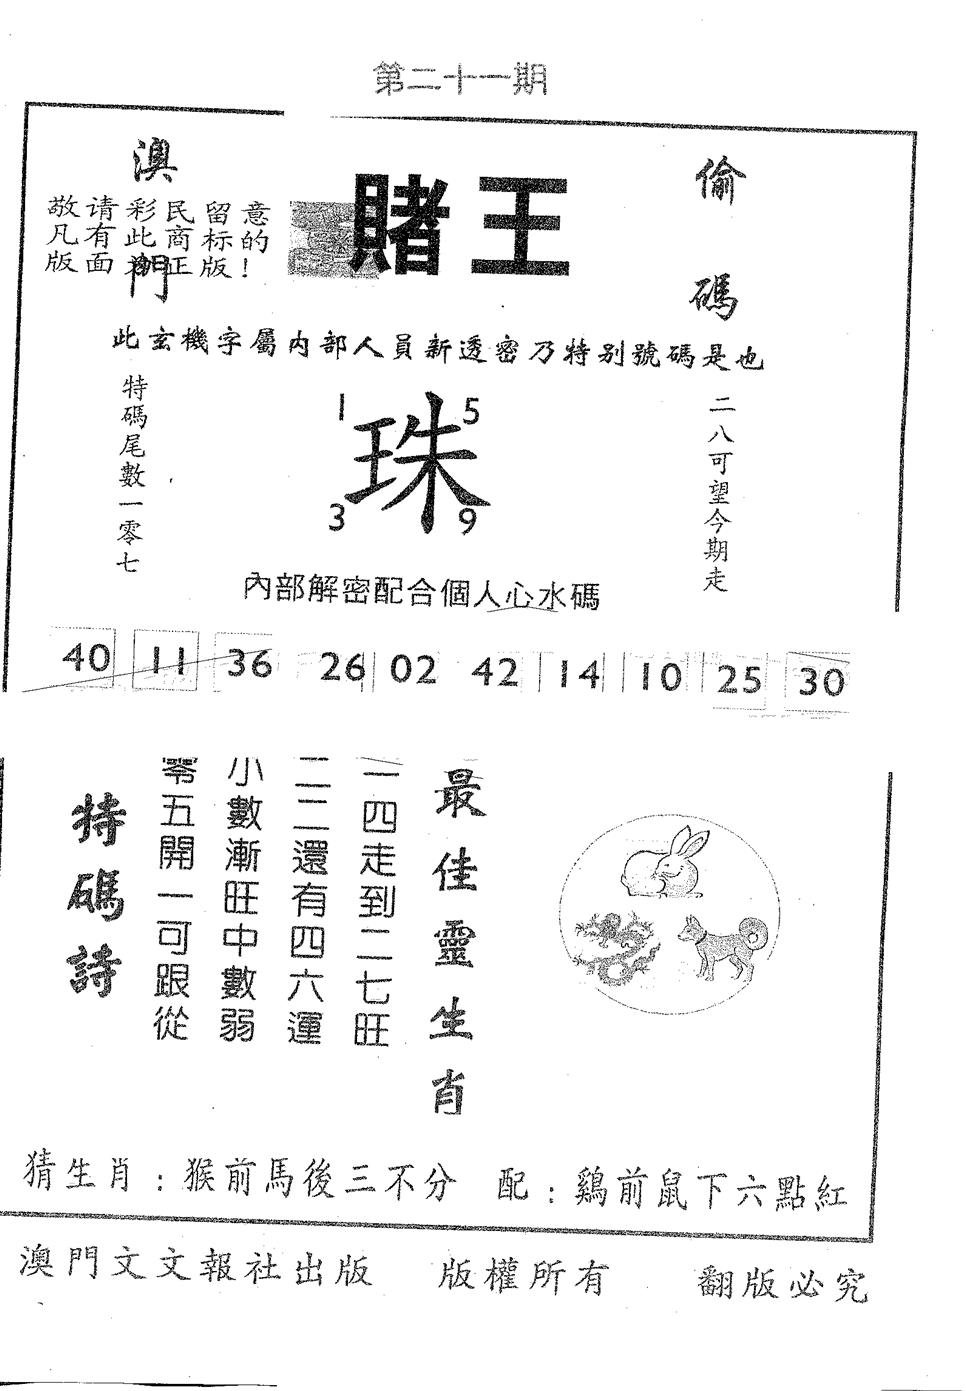 第二十一期
澳門
賭王
偷碼
敬请彩民留意
凡有此商标的
版面为正版!
此玄機字屬内部人員新透密乃特别號碼是也
特碼尾數一零七
1 5
珠
3 9
二八可望今期走
內部解密配合個人心水碼
40 11 36 26 02 42 14 10 25 30
最佳靈生肖
一四走到二七旺
二二還有四六運
小數漸旺中數弱
零五開一可跟從
特碼詩
猜生肖:猴前馬後三不分 配:鷄前鼠下六點紅
澳門文文報社出版 版權所有 翻版必究